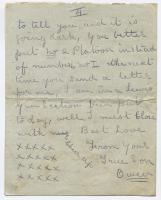 II
to tell you, and it is
going dark, you better
put No 2 Platoon instead
of number no 1 the next
time you send a letter
for me, I am in a
section
to day, well I must close
with Best Love
xxxxx From your
xxxxx True Son
xxxxx
xxxxx